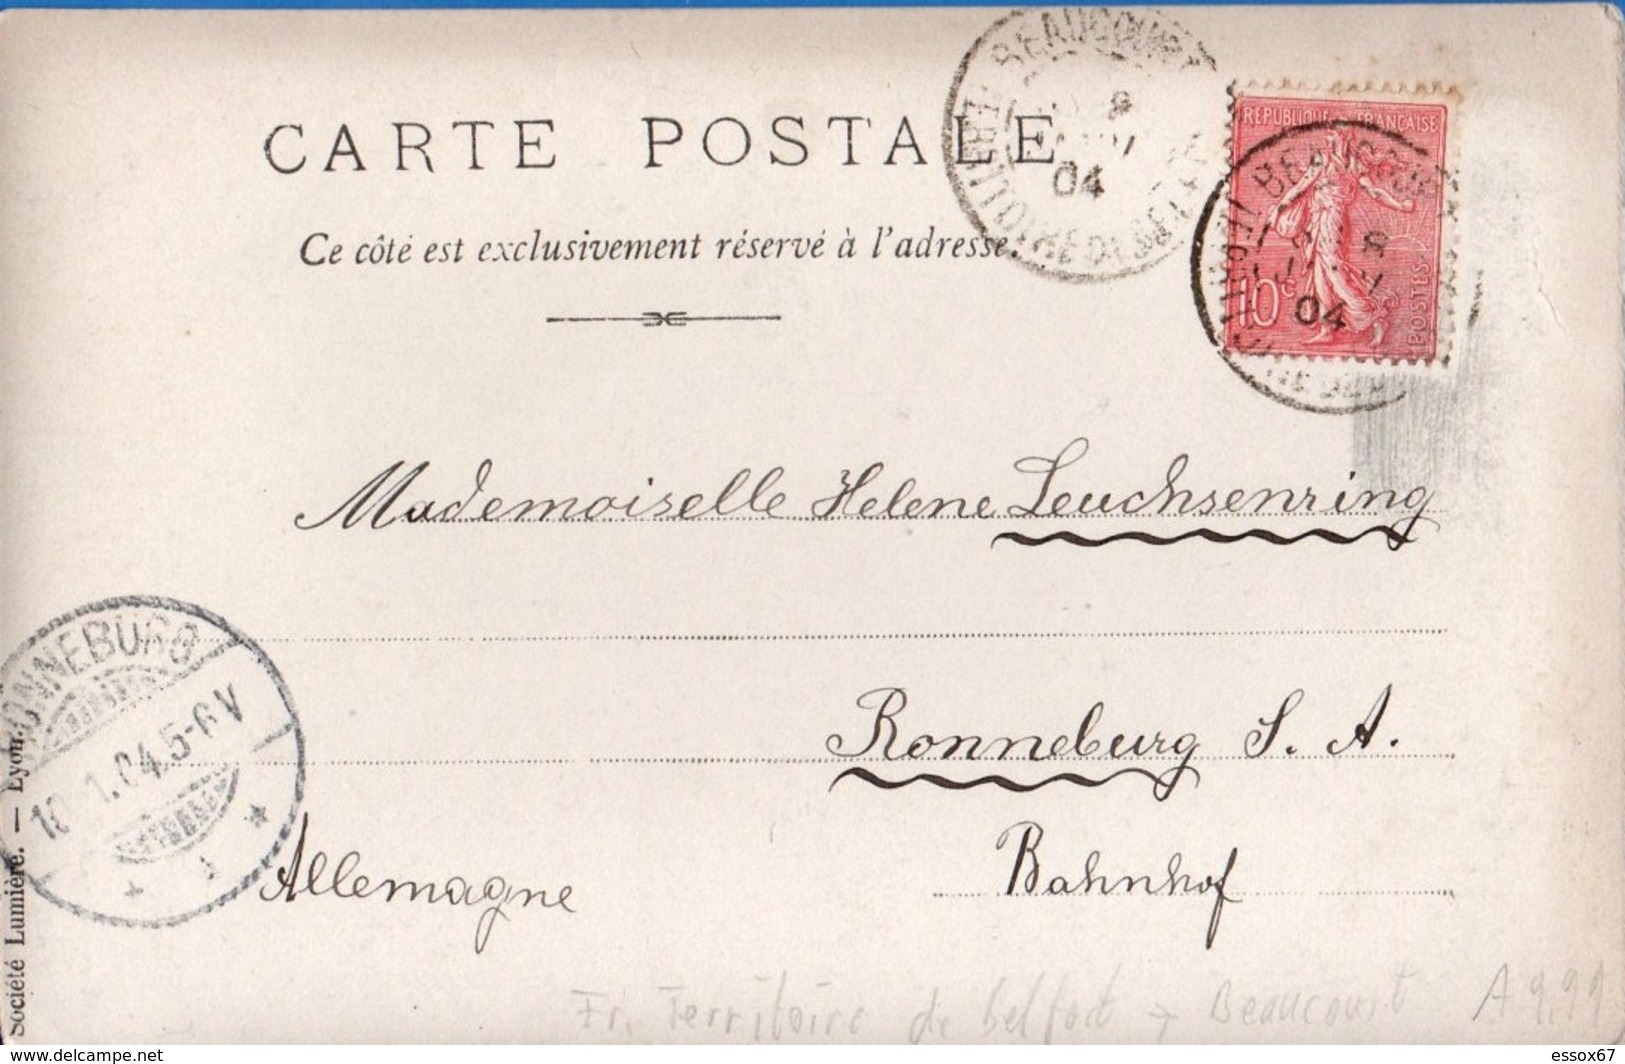 BEAUCOURT
8
04
CARTE POSTALE
Ce côté est exclusivement réservé à l'adresse.
REPUBLIQUE FRANÇAISE
10c
POSTES
BEAUCOURT
04
Mademoiselle Helene Leuchsenring
Ronneburg S. A.
Bahnhof
Allemagne
RONNEBURG
10.1.04.5-6V
Société Lumière. — Lyon.
Fr. Territoire de Belfort → Beaucourt A 9,99
www.delcampe.net
essox67